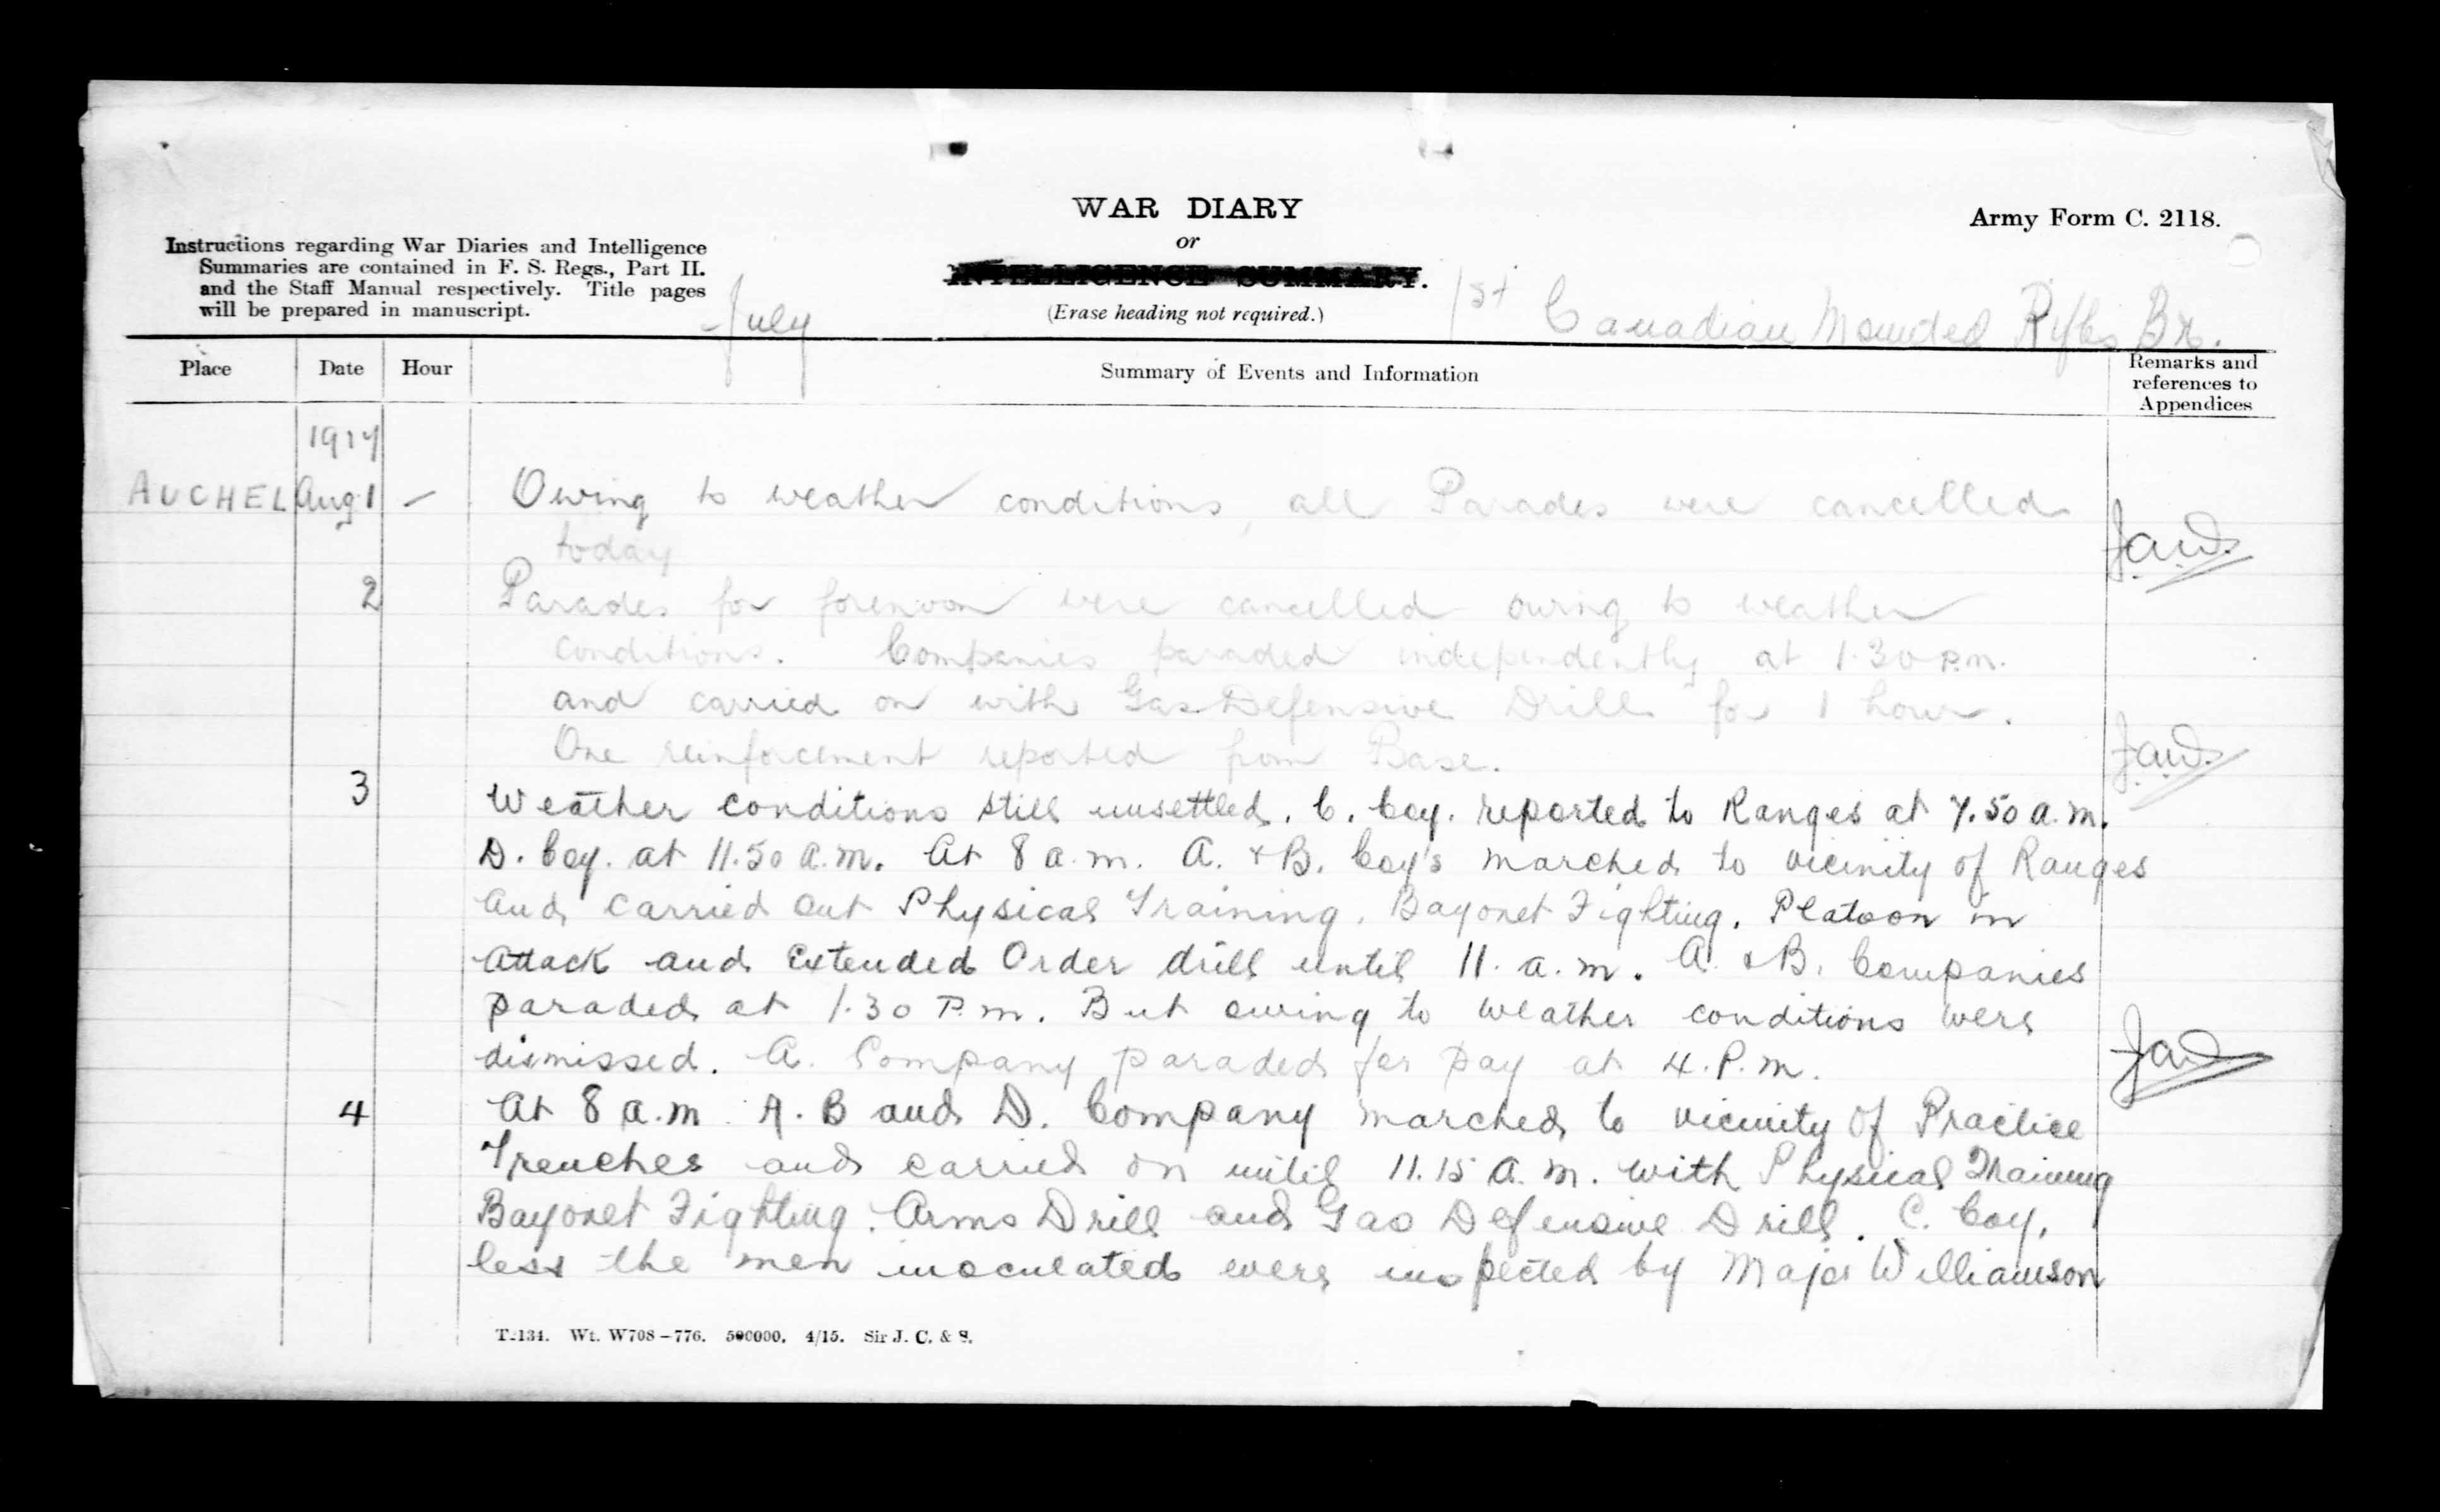 WAR DIARY
or
INTELLIGENCE SUMMARY.
(Erase heading not required.)
Army Form C. 2118.
Instructions regarding War Diaries and Intelligence
Summaries are contained in F. S. Regs., Part II.
and the Staff Manual respectively. Title pages
will be prepared in manuscript.
July
1st Canadian Mounted Rifles Bn.
Place Date Hour Summary of Events and Information Remarks and
references to
Appendices
1917
AUCHEL Aug 1 — Owing to weather conditions, all Parades were cancelled
today
J.A.W.
2 Parades for forenoon were cancelled owing to weather
conditions. Companies paraded independently at 1.30 P.m.
and carried on with Gas Defensive Drill for 1 hour.
One reinforcement reported from Base.
J.A.W.
3 Weather conditions still unsettled. C. Coy. reported to Ranges at 7.50 a.m.
D. Coy. at 11.50 a.m. At 8 a.m. A. & B. Coy's marched to vicinity of Ranges
and carried out Physical Training, Bayonet Fighting. Platoon in
attack and Extended Order drill until 11. a.m. A. & B. Companies
paraded at 1.30 P.m. But owing to weather conditions were
dismissed. A. Company paraded for Pay at 4.P.m.
J.A.W.
4 At 8 a.m. A. B and D. Company marched to vicinity of Practice
Trenches and carried on until 11.15 a.m. with Physical Training
Bayonet Fighting. Arms Drill and Gas Defensive Drill. C. Coy,
less the men inoculated were inspected by Major Williamson
T.134. Wt. W708—776. 500000. 4/15. Sir J. C. & S.